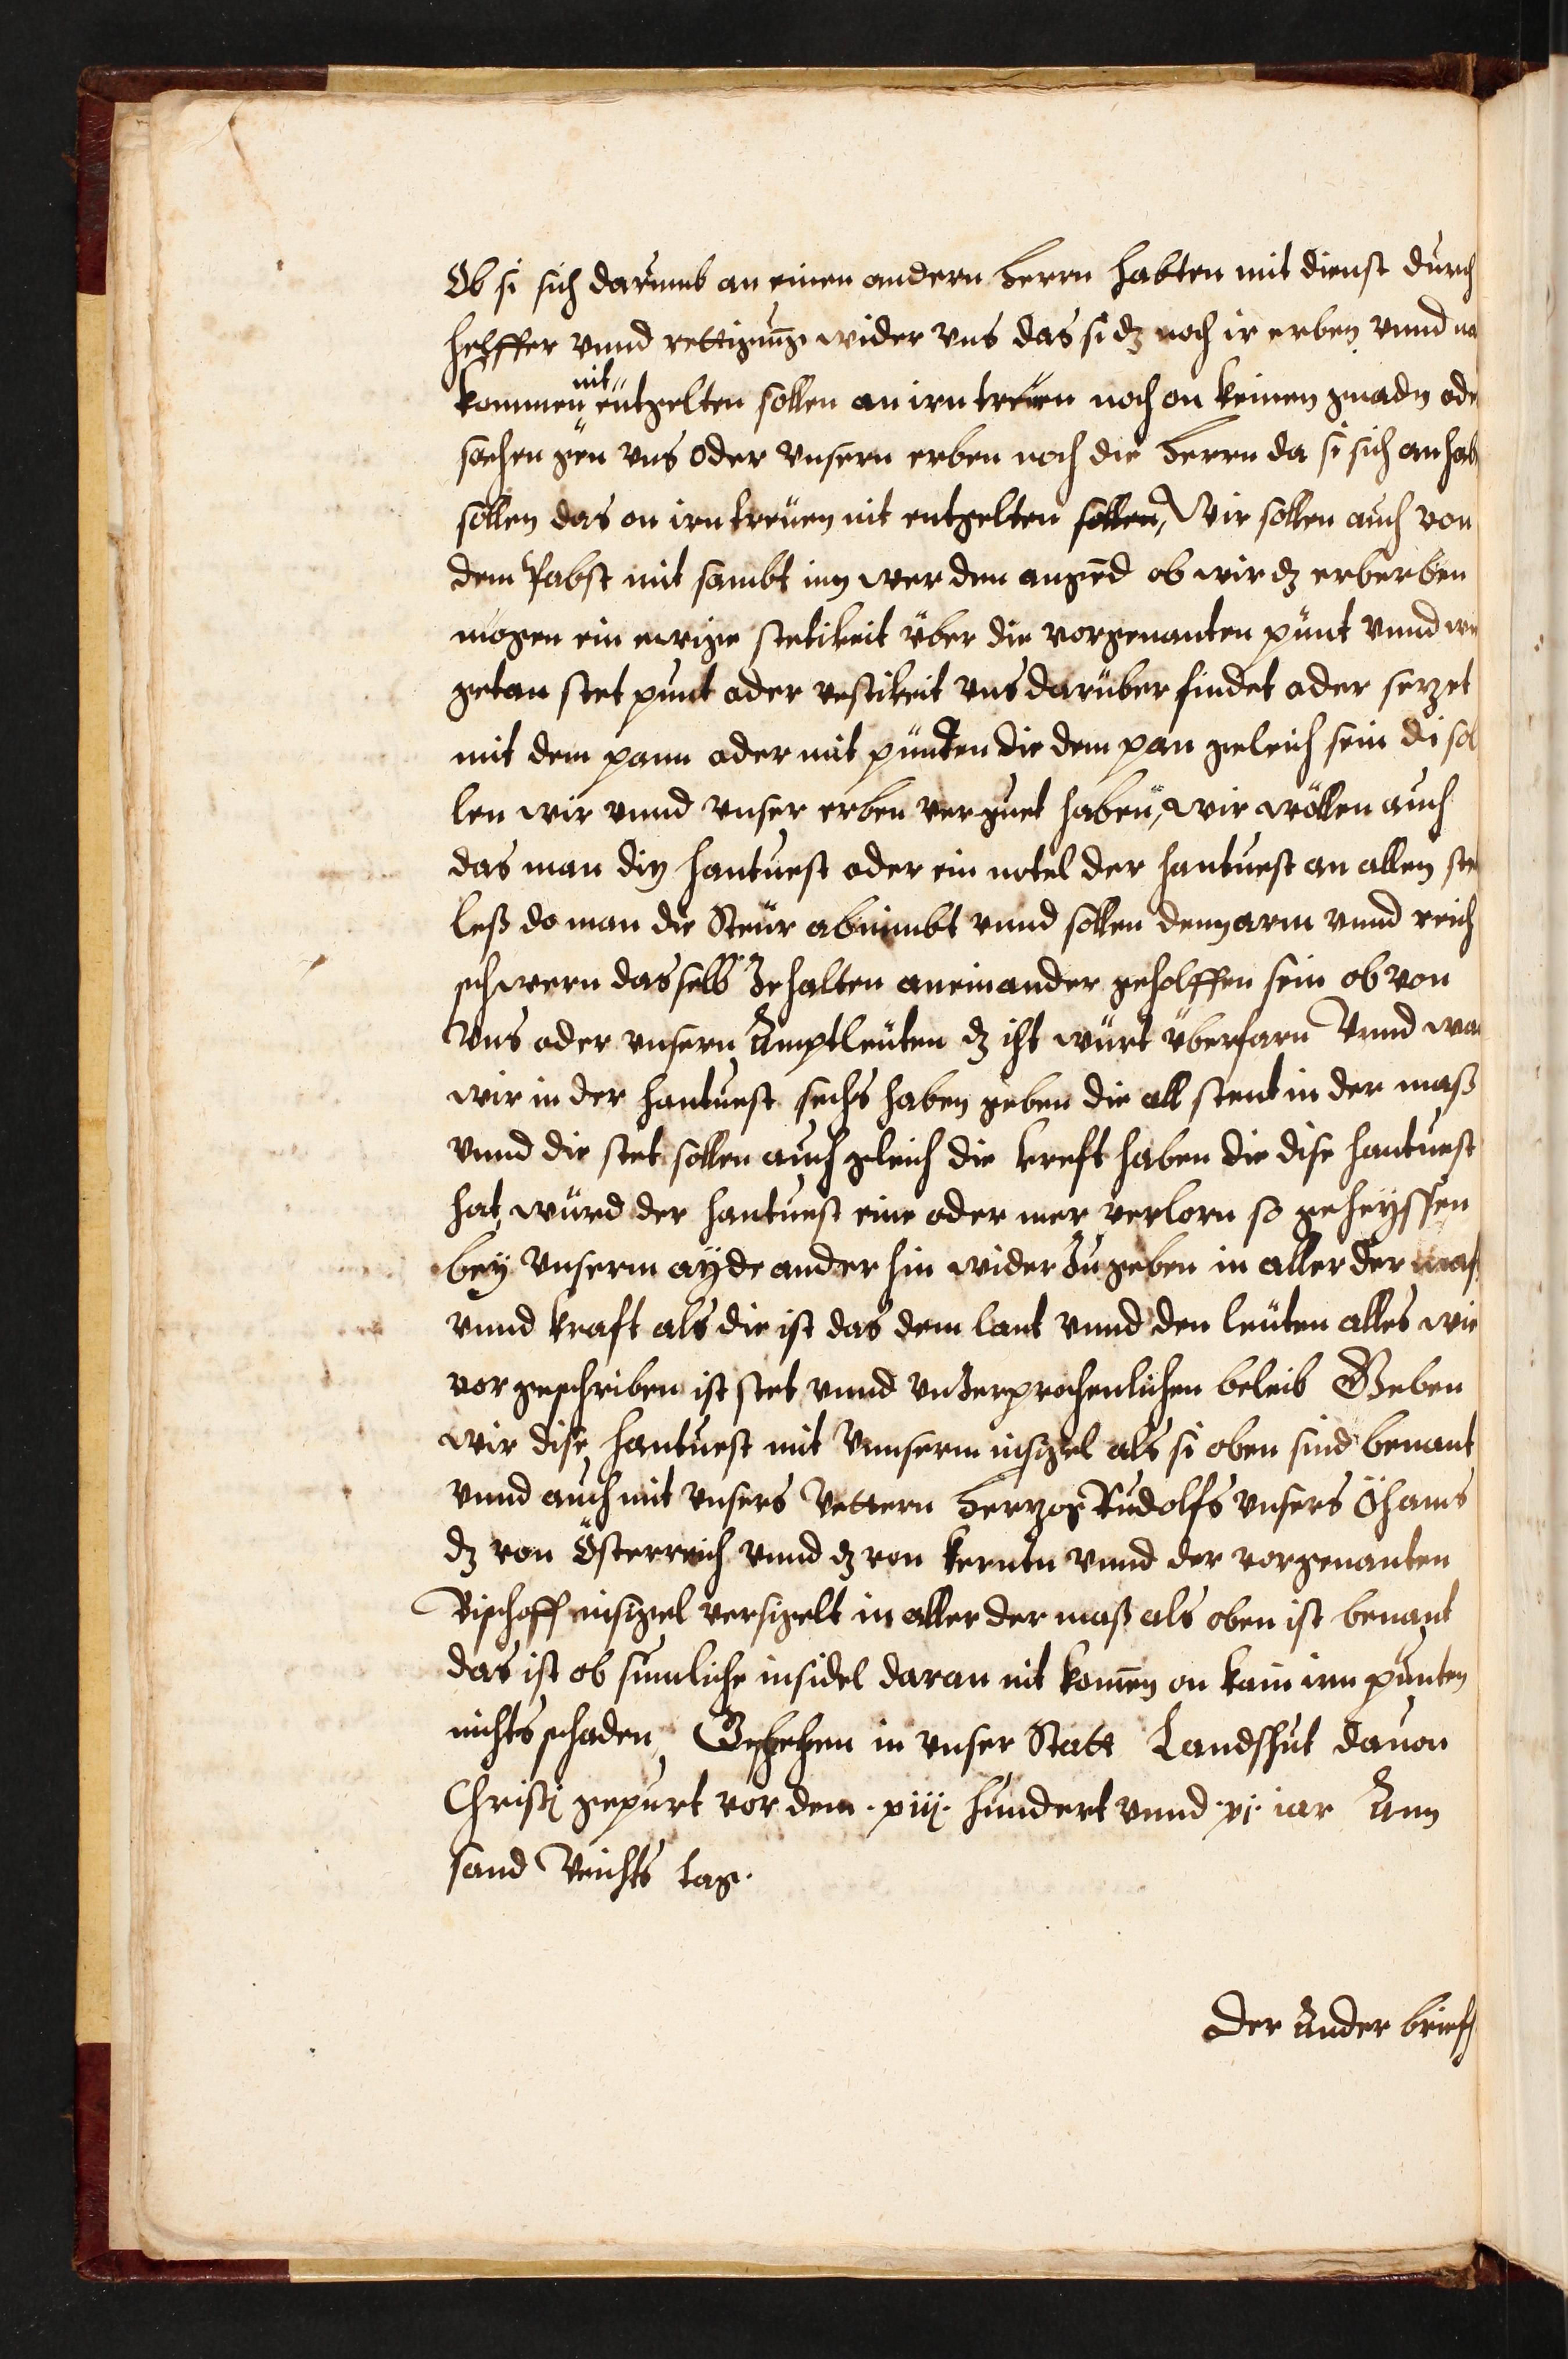 Ob si sich darumb an einen andern herrn habten mit dienst durch
helffer vnnd rettigung wider vns das si dz noch ir erben vnnd na
kommen nit entgelten sollen an irn treuen noch on keinen gnadn ode
sachen gen vns oder vnsern erben noch die herrn da si sich an hab
sollen das on irn treuen nit entgelten sollen, Wir sollen auch von
dem Pabst mit sambt inn werden angend ob wir dz erberben
mögen ein ewige stetikeit über die vorgenanten pünt vnnd we
getan stet punt oder vestikeit vns darüber findet oder sezet
mit dem pann oder mit püntten die dem pan geleich sein di sol
len wir vnnd vnser erben verguet haben, wir wöllen auch
das man diy hantuest oder ein notel der hantuest an allen ste
leß do man die Steur abnimbt vnnd sollen denn arm vnnd reich
schwern dasselb Zehalten aneinander geholffen sein ob von
Vns oder vnsern Amptleüten dz iht würt überfarn Vnnd wa
wir in der hantuest sechs haben geben die all stent in der maß
vnnd die stet sollen auch gleich die kreft haben die dise hantuest
hat, würd der hantuest eine oder mer verlorn so geheyssen
bey vnserm ayde ander hin wider Zugeben in aller der mas
vnnd kraft als die ist das dem lant vnnd den leüten alles wie
vor geschriben ist stet vnnd vnZerprochenlichen beleib Geben
wir dise hantuest mit Vnnserm insigel als si oben sind benant
vnnd auch mit vnsers Vettern herzog Rudolfs vnsers Öhams
dz von Österreich vnnd dz von kerntn vnnd der vorgenanten
Bischoff insigel versigelt in aller der maß als oben ist benant
das ist ob sumliche insidel daran nit komen on kain irn pünten
nichts schaden, Geschehen in vnser Statt Landshut dauon
Christi gepurt vor dem .xiij. hundert vnnd .xi. iar Ann
sand Veichts tag.
Der Ander brief